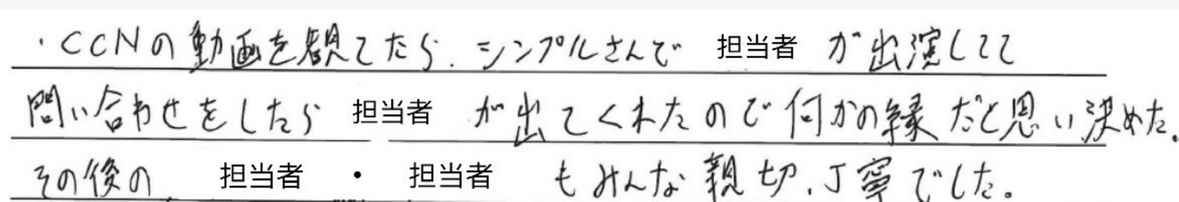 ・CCNの動画を観てたら、シンプルさんで 担当者 が出演してて
問い合わせをしたら 担当者 が出てくれたので何かの縁だと思い決めた。
その後の、担当者 ・ 担当者 もみんな親切、丁寧でした。